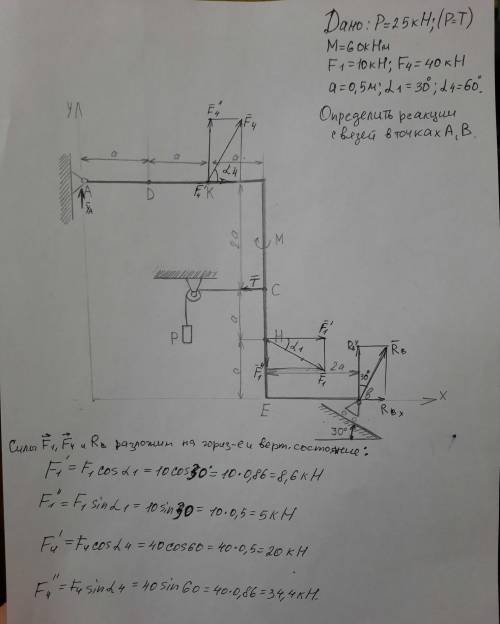 Дано: P=25кН; (P=T)
M=60кНм
F1=10кН; F4=40кН
a=0,5м; α1=30°; α4=60°.
Определить реакции
связей в точках A, B.
y
F4''
F4
a
a
a
α4
A
D
F4'
K
2a
M
T
C
P
a
H
α1
F1'
F1''
F1
2a
a
RB
30°
B
RBx
x
E
30°
Силы F1, F4 и RB разложим на гориз-е и верт. состо-ие:
F1' = F1 cosα1 = 10cos30° = 10·0,86 = 8,6кН
F1'' = F1 sinα1 = 10sin30 = 10·0,5 = 5кН
F4' = F4 cosα4 = 40cos60 = 40·0,5 = 20кН
F4'' = F4 sinα4 = 40sin60 = 40·0,86 = 34,4кН.